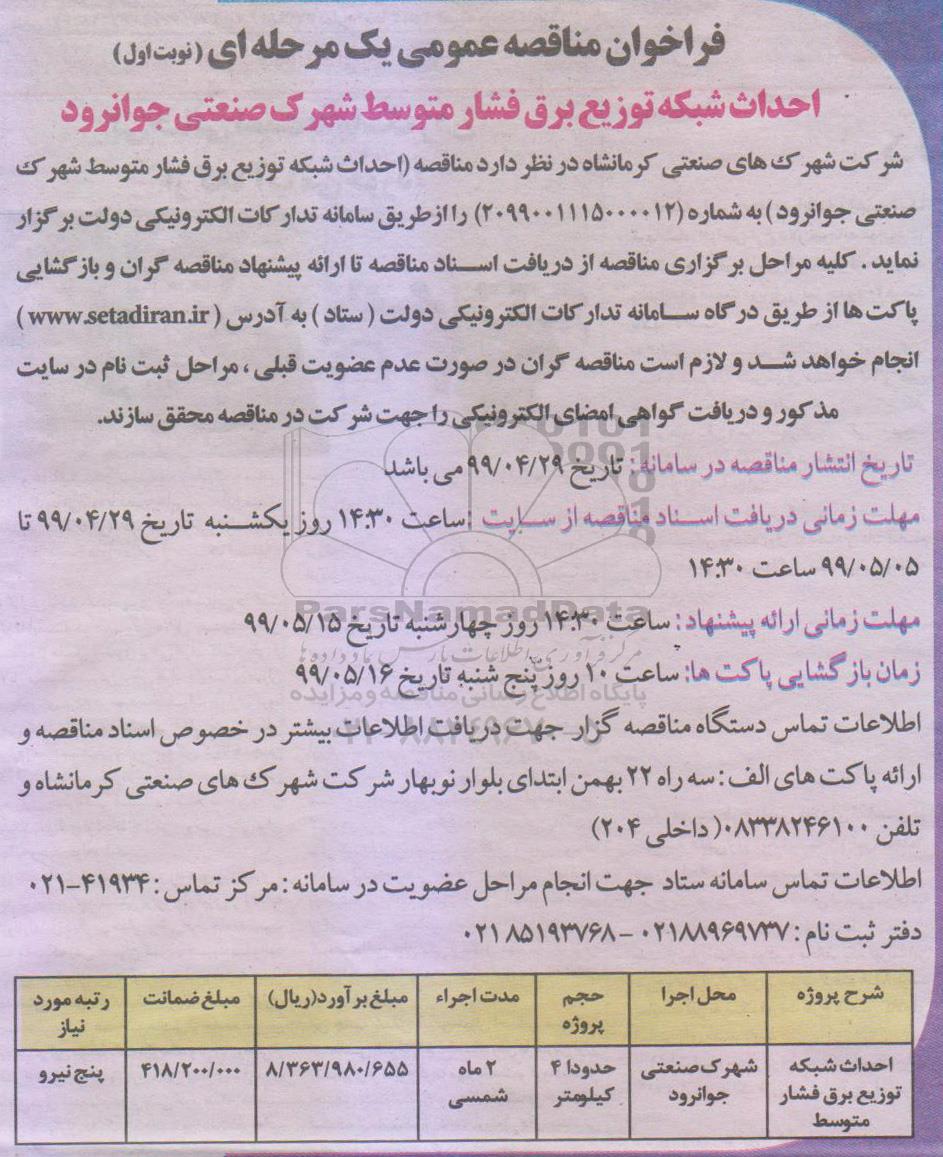 فراخوان مناقصه عمومی یک مرحله ای (نوبت اول)
احداث شبکه توزیع برق فشار متوسط شهرک صنعتی جوانرود
شرکت شهرک های صنعتی کرمانشاه در نظر دارد مناقصه (احداث شبکه توزیع برق فشار متوسط شهرک
صنعتی جوانرود) به شماره (۲۰۹۹۰۰۱۱۱۵۰۰۰۰۱۲) را از طریق سامانه تدارکات الکترونیکی دولت برگزار
نماید. کلیه مراحل برگزاری مناقصه از دریافت اسناد مناقصه تا ارائه پیشنهاد مناقصه گران و بازگشایی
پاکت ها از طریق درگاه سامانه تدارکات الکترونیکی دولت (ستاد) به آدرس (www.setadiran.ir)
انجام خواهد شد و لازم است مناقصه گران در صورت عدم عضویت قبلی، مراحل ثبت نام در سایت
مذکور و دریافت گواهی امضای الکترونیکی را جهت شرکت در مناقصه محقق سازند.
تاریخ انتشار مناقصه در سامانه: تاریخ ۹۹/۰۴/۲۹ می باشد
مهلت زمانی دریافت اسناد مناقصه از سایت: ساعت ۱۴:۳۰ روز یکشنبه تاریخ ۹۹/۰۴/۲۹ تا
۹۹/۰۵/۰۵ ساعت ۱۴:۳۰
ParsNamadData
مهلت زمانی ارائه پیشنهاد: ساعت ۱۴:۳۰ روز چهارشنبه تاریخ ۹۹/۰۵/۱۵
زمان بازگشایی پاکت ها: ساعت ۱۰ روز پنج شنبه تاریخ ۹۹/۰۵/۱۶
پایگاه اطلاع رسانی مناقصه و مزایده
اطلاعات تماس دستگاه مناقصه گزار جهت دریافت اطلاعات بیشتر در خصوص اسناد مناقصه و
ارائه پاکت های الف: سه راه ۲۲ بهمن ابتدای بلوار نوبهار شرکت شهرک های صنعتی کرمانشاه و
تلفن ۰۸۳۳۸۲۴۶۱۰۰ (داخلی ۲۰۴)
اطلاعات تماس سامانه ستاد جهت انجام مراحل عضویت در سامانه: مرکز تماس: ۴۱۹۳۴-۰۲۱
دفتر ثبت نام: ۰۲۱۸۸۹۶۹۷۳۷ - ۰۲۱۸۵۱۹۳۷۶۸
شرح پروژه | محل اجرا | حجم پروژه | مدت اجراء | مبلغ برآورد(ریال) | مبلغ ضمانت | رتبه مورد نیاز
احداث شبکه توزیع برق فشار متوسط | شهرک صنعتی جوانرود | حدودا ۴ کیلومتر | ۲ ماه شمسی | ۸/۳۶۳/۹۸۰/۶۵۵ | ۴۱۸/۲۰۰/۰۰۰ | پنج نیرو